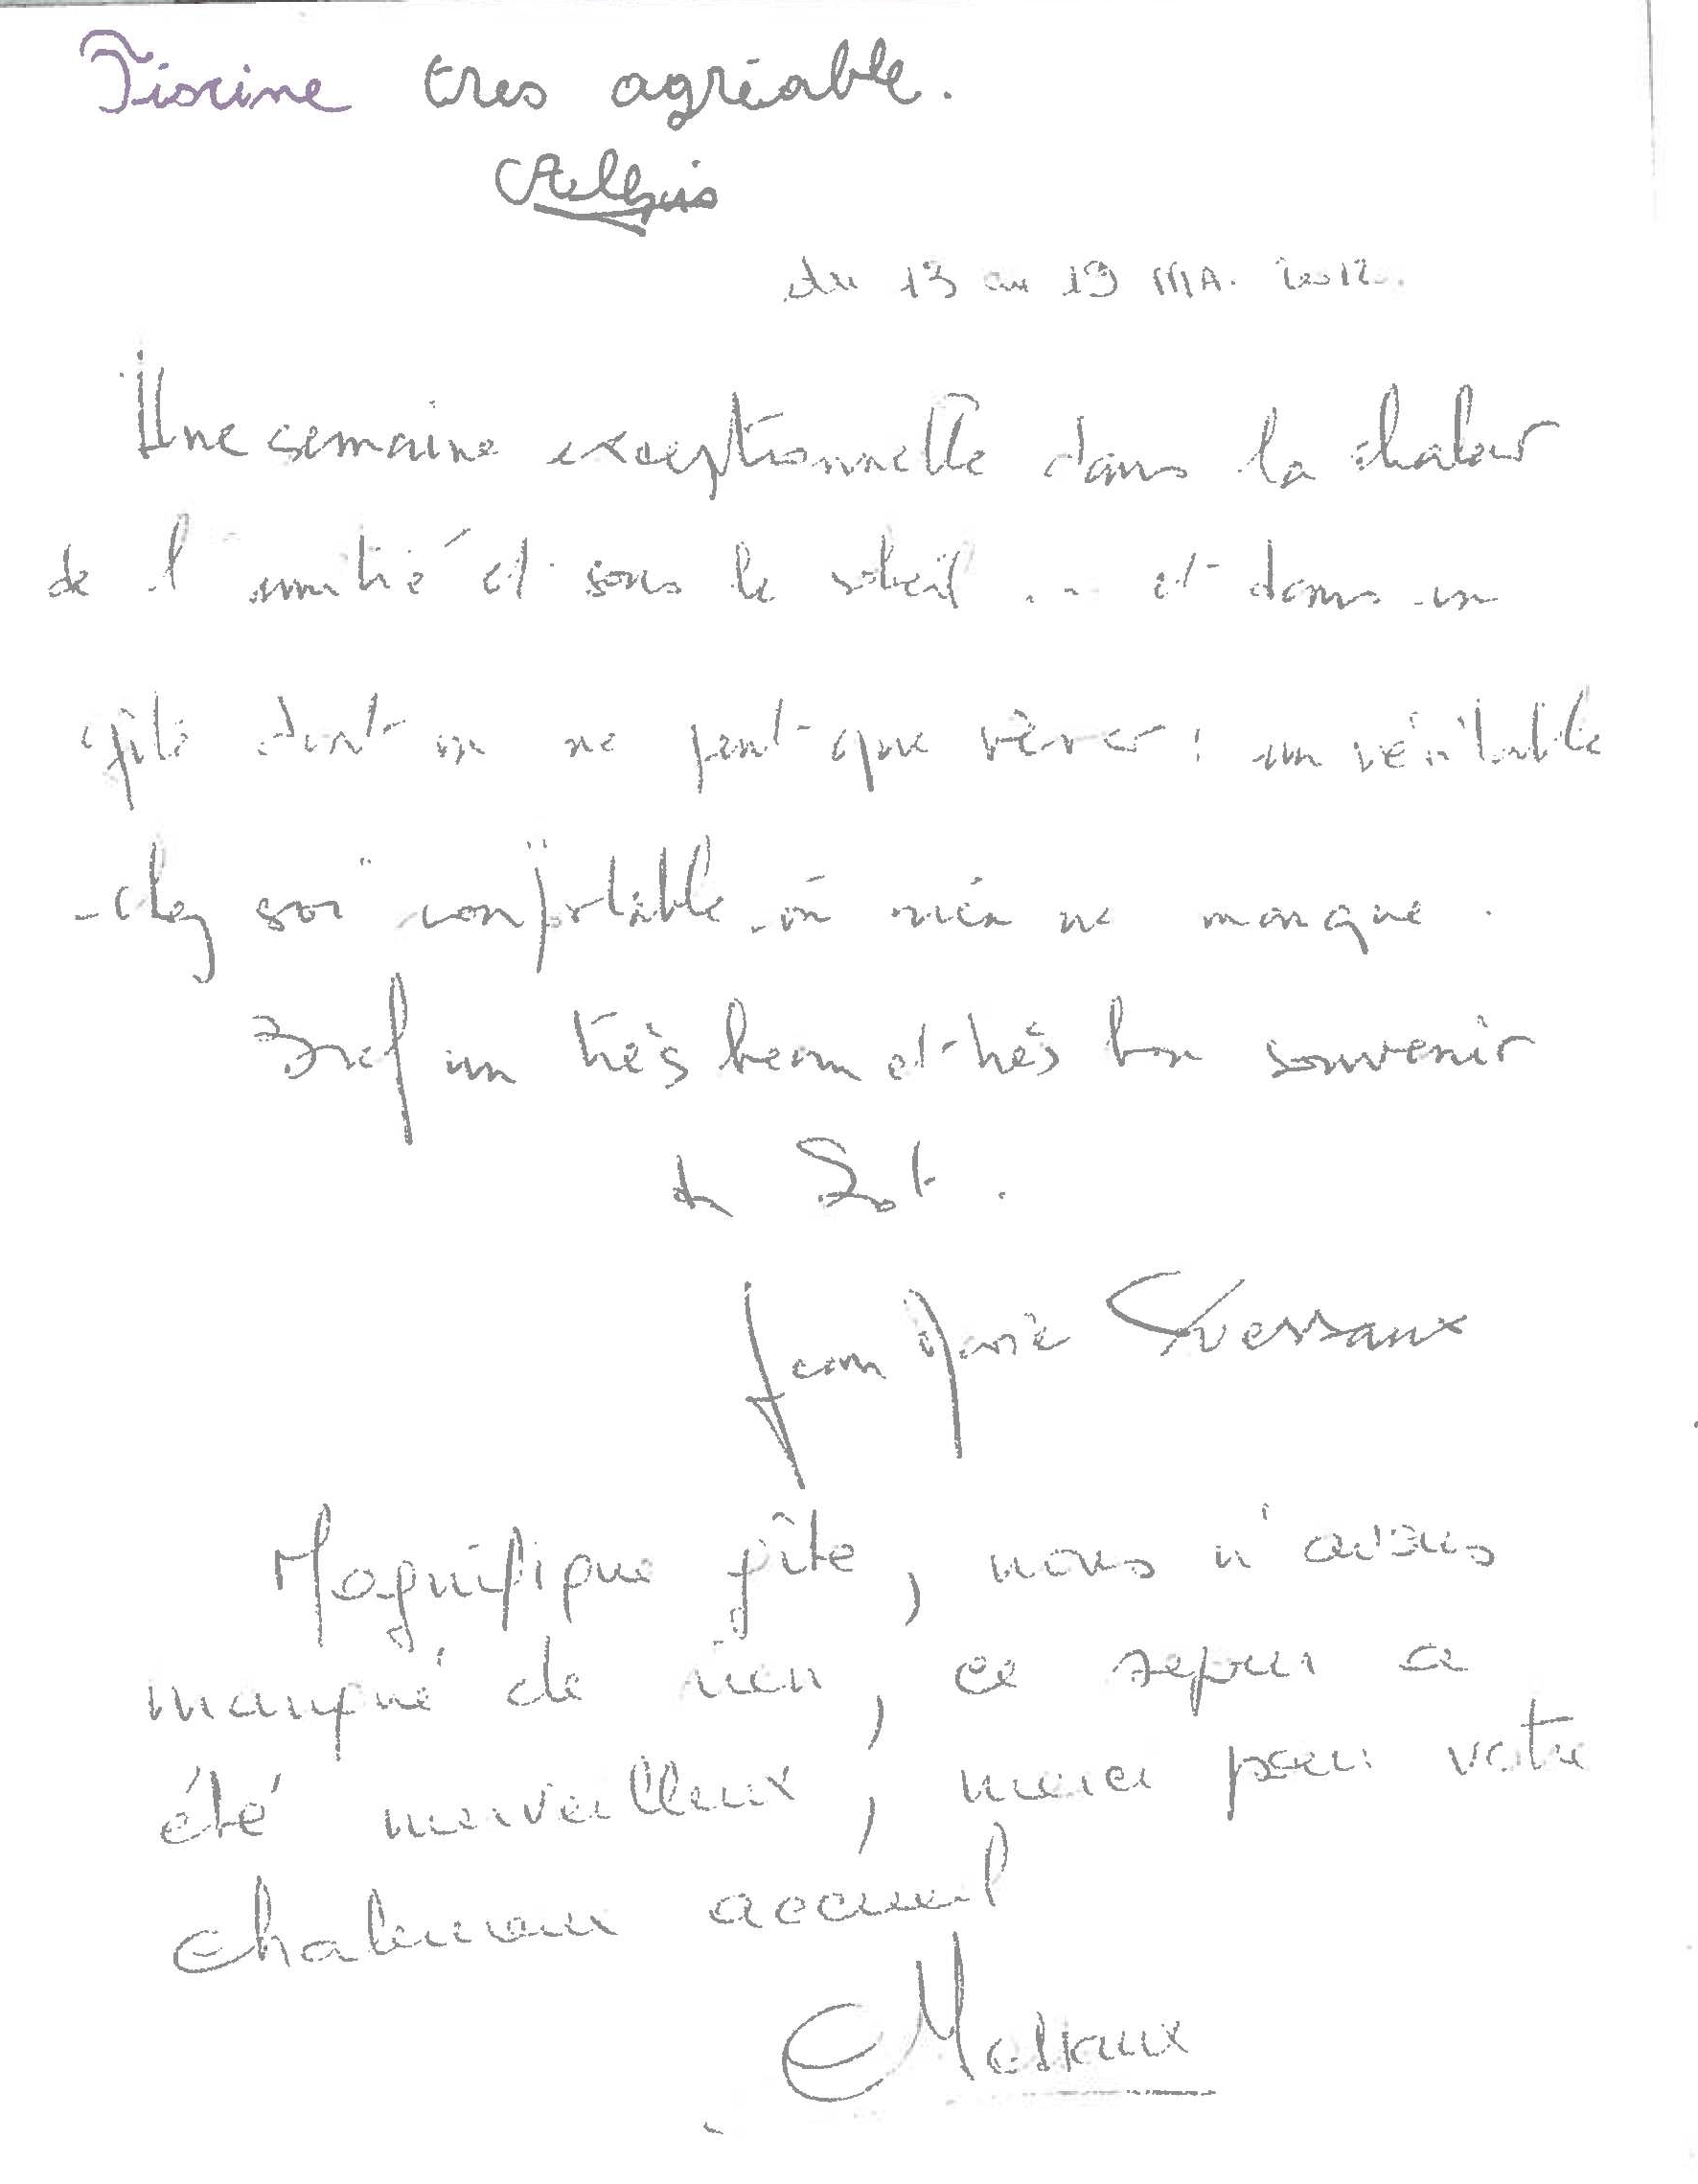 Piscine tres agréable.
du 13 au 19 MA. 2012.
Une semaine exceptionnelle dans la chaleur
de l'amitié et sous le soleil ... et dans un
gîte dont on ne peut que rêver : un véritable
"chez soi" confortable où rien ne manque.
Bref un très beau et très bon souvenir
du Lot.
Jean Marie
Magnifique gîte, nous n'avons
manqué de rien, ce séjour a
été merveilleux, merci pour votre
chaleureux accueil